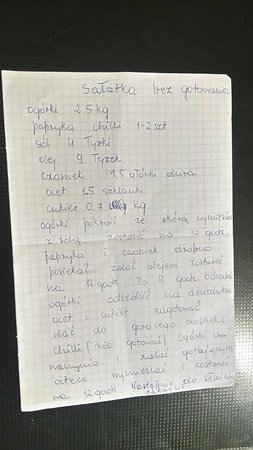 Sałatka bez gotowania
ogórki 2.5 kg
papryka chilli 1-2 szt
sól 4 łyżki
olej 9 łyżek
czosnek 1,5 główki duża
ocet 1.5 szklanki
cukier 0.7 kg
ogórki pokroić ze skórą wymieszać
z solą zostawić na 12 godz
papryka i czosnek drobno
posiekać zalać olejem zostawić
na 12 godz. Po 12 godz
ogórki odcedzić na durszlaku
ocet i cukier zagotować
wlać do gorącego czosnek i
chilli (nie gotować) Ogórki do
naczynia i zalać gotującym
octem wymieszać i zostawić
na 12 godz Następnie do słoików